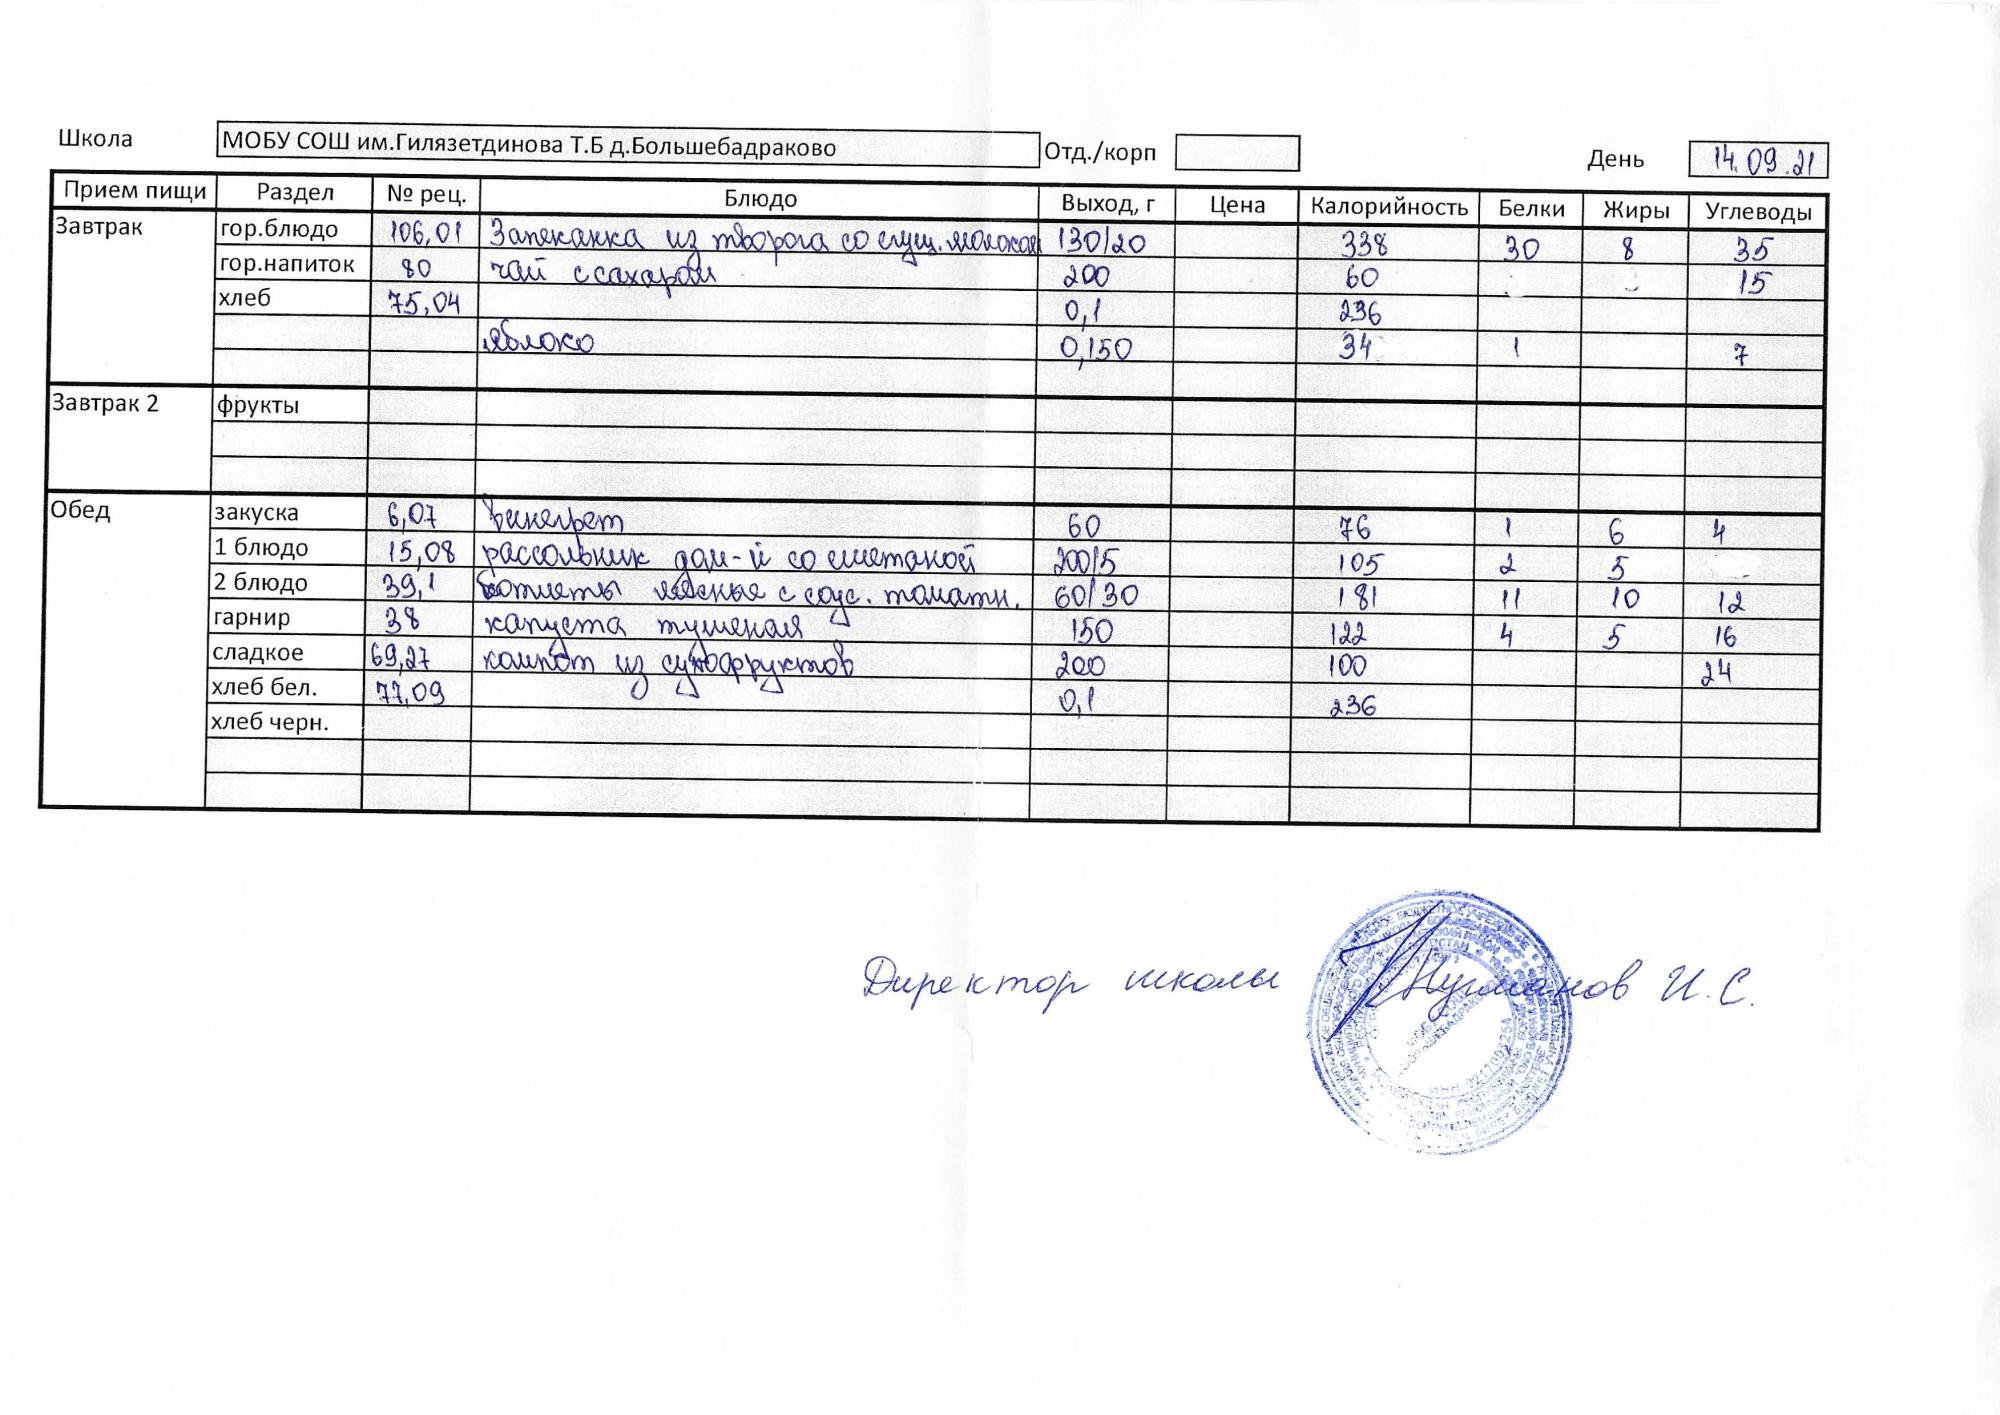 Школа МОБУ СОШ им.Гилязетдинова Т.Б д.Большебадраково Отд./корп День 14.09.21
Прием пищи Раздел № рец. Блюдо Выход, г Цена Калорийность Белки Жиры Углеводы
Завтрак гор.блюдо 106,01 Запеканка из творога со сгущ. молоком 130/20 338 30 8 35
гор.напиток 80 чай с сахаром 200 60 15
хлеб 75,04 0,1 236
яблоко 0,150 34 1 7
Завтрак 2 фрукты
Обед закуска 6,07 винегрет 60 76 1 6 4
1 блюдо 15,08 рассольник дом-й со сметаной 200/5 105 2 5
2 блюдо 39,1 котлеты мясные с соус. томатн. 60/30 181 11 10 12
гарнир 38 капуста тушеная 150 122 4 5 16
сладкое 69,27 компот из сухофруктов 200 100 24
хлеб бел. 77,09 0,1 236
хлеб черн.
Директор школы Нугманов И.С.